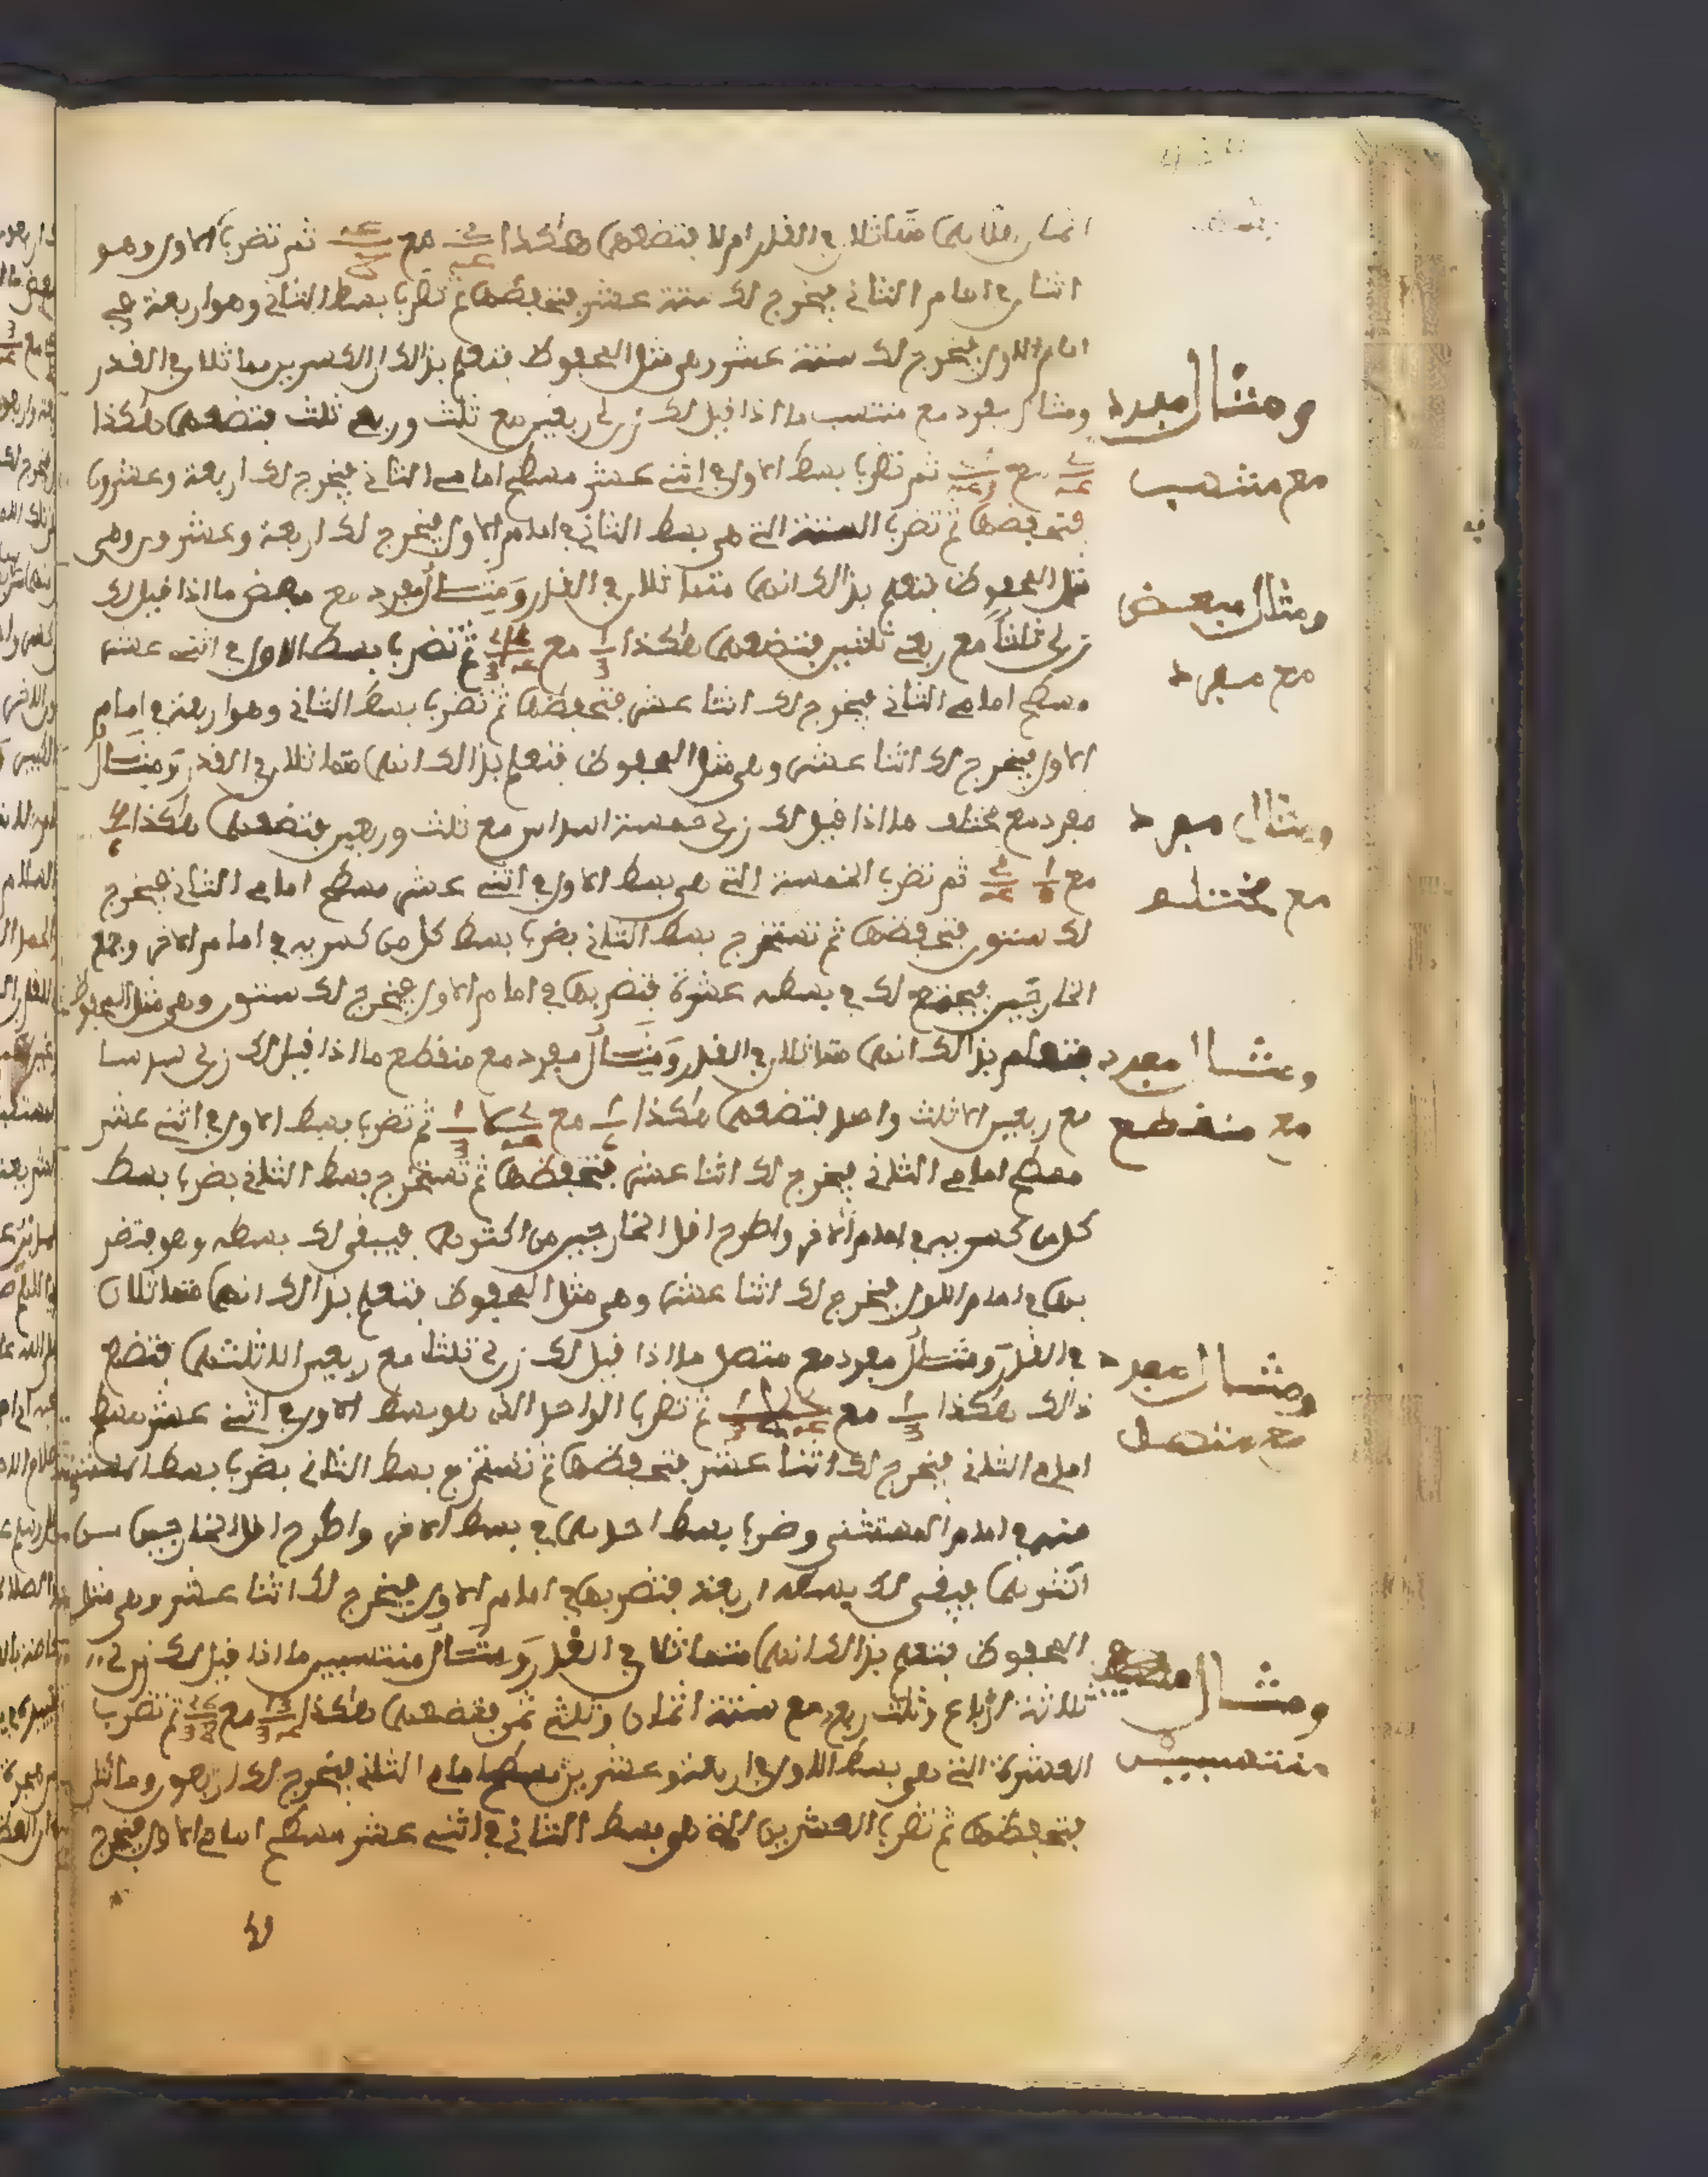 اثمان هل هما متماثلان في القدر ام لا فتضعهما هكذا مع ثم تضرب الاول وهو
اثنان في امام الثاني فيخرج لك ستة عشر فتحفظها ثم تضرب بسط الثاني وهو اربعة في
امام الاول فيخرج لك ستة عشر وهي مثل المحفوظ فتعلم بذالك ان الكسرين متماثلان في القدر
ومثال مفرد مع منتسب ما اذا قيل لك زن لي ربعين مع ثلث وربع ثلث فتضعهما هكذا
مع ثم تضرب بسط الاول في اثنى عشر مسطح امامي الثاني فيخرج لك اربعة وعشرون
فتحفظها ثم تضرب الستة التي هي بسط الثاني في امام الاول فيخرج لك اربعة وعشرون وهي
مثل المحفوظ فتعلم بذالك انهما متماثلان في القدر ومثال مفرد مع مبعض ما اذا قيل لك
زن لي ثلثا مع ربعي ثلثين فتضعهما هكذا مع ثم تضرب بسط الاول في اثنى عشر
مسطح امامي الثاني فيخرج لك اثنا عشر فتحفظها ثم تضرب بسط الثاني وهو اربعة في امام
الاول فيخرج لك اثنا عشر وهي مثل المحفوظ فتعلم بذالك انهما متماثلان في القدر ومثال
مفرد مع مختلف ما اذا قيل لك زن لي خمسة اسداس مع ثلث وربعين فتضعهما هكذا
مع ثم تضرب الخمسة التي هي بسط الاول في اثنى عشر مسطح امامي الثاني فيخرج
لك ستون فتحفظها ثم تستخرج بسط الثاني بضرب بسط كل من كسريه في امام الاخر وجمع
الخارجين فيجتمع لك في بسطه عشرة فتضربها في امام الاول فيخرج لك ستون وهي مثل المحفوظ
فتعلم بذالك انهما متماثلان في القدر ومثال مفرد مع منقطع ما اذا قيل لك زن لي سدسا
مع ربعين الا ثلث واحد فتضعهما هكذا مع ثم تضرب بسط الاول في اثنى عشر
مسطح امامي الثاني فيخرج لك اثنا عشر فتحفظها ثم تستخرج بسط الثاني بضرب بسط
كل من كسريه في امام الاخر واطرح اقل الخارجين من اكثرهما فيبقى لك بسطه وهو فتضر
بها في امام الاول فيخرج لك اثنا عشر وهي مثل المحفوظ فتعلم بذالك انهما متماثلان
في القدر ومثال مفرد مع متصل ما اذا قيل لك زن لي ثلثا مع ربعين الا ثلثهما فتضع
ذالك هكذا مع ثم تضرب الواحد الذي هو بسط الاول في اثنى عشر مسطح
امامي الثاني فيخرج لك اثنا عشر فتحفظها ثم تستخرج بسط الثاني بضرب بسط المستثنى
منه في امام المستثنى وضرب بسط احدهما في بسط الاخر واطرح اقل الخارجين من
اكثرهما فيبقى لك بسطه اربعة فتضربها في امام الاول فيخرج لك اثنا عشر وهي مثل
المحفوظ فتعلم بذالك انهما متماثلان في القدر ومثال منتسبين ما اذا قيل لك زن لي
ثلاثة ارباع وثلث ربع مع ستة اثمان وثلثي ثمن فتضعهما هكذا مع ثم تضرب
العشرة التي هي بسط الاول في اربعة وعشرين مسطح امامي الثاني فيخرج لك اربعون ومائتان
فتحفظها ثم تضرب العشرين التي هي بسط الثاني في اثنى عشر مسطح امامي الاول فيخرج
ومثال مفرد
مع منتسب
ومثال مبعض
مع مفرد
ومثال مفرد
مع مختلف
ومثال مفرد
مع منقطع
ومثال مفرد
مع متصل
ومثال
منتسبين